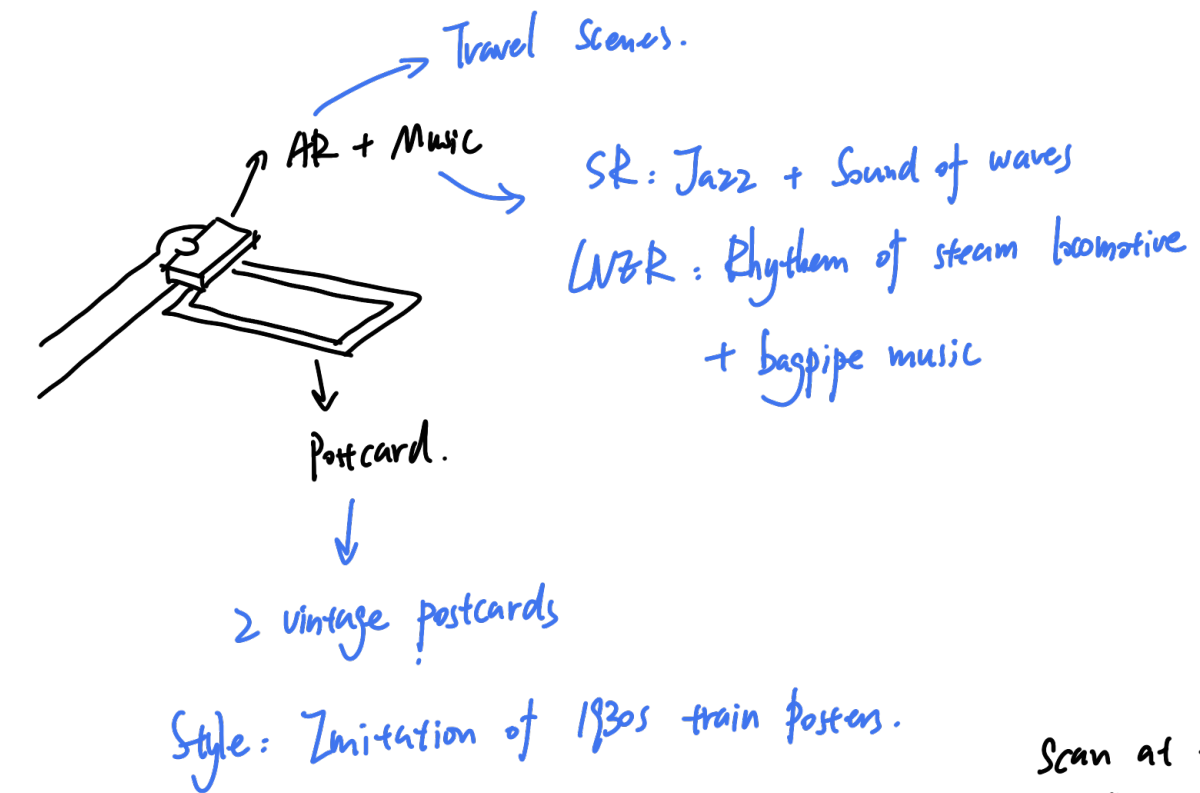 Travel Scenes.
AR + Music
SR: Jazz + Sound of waves
LNER: Rhythem of steam locomotive
+ bagpipe music
Postcard.
2 vintage postcards
Style: Imitation of 1930s train posters.
Scan at